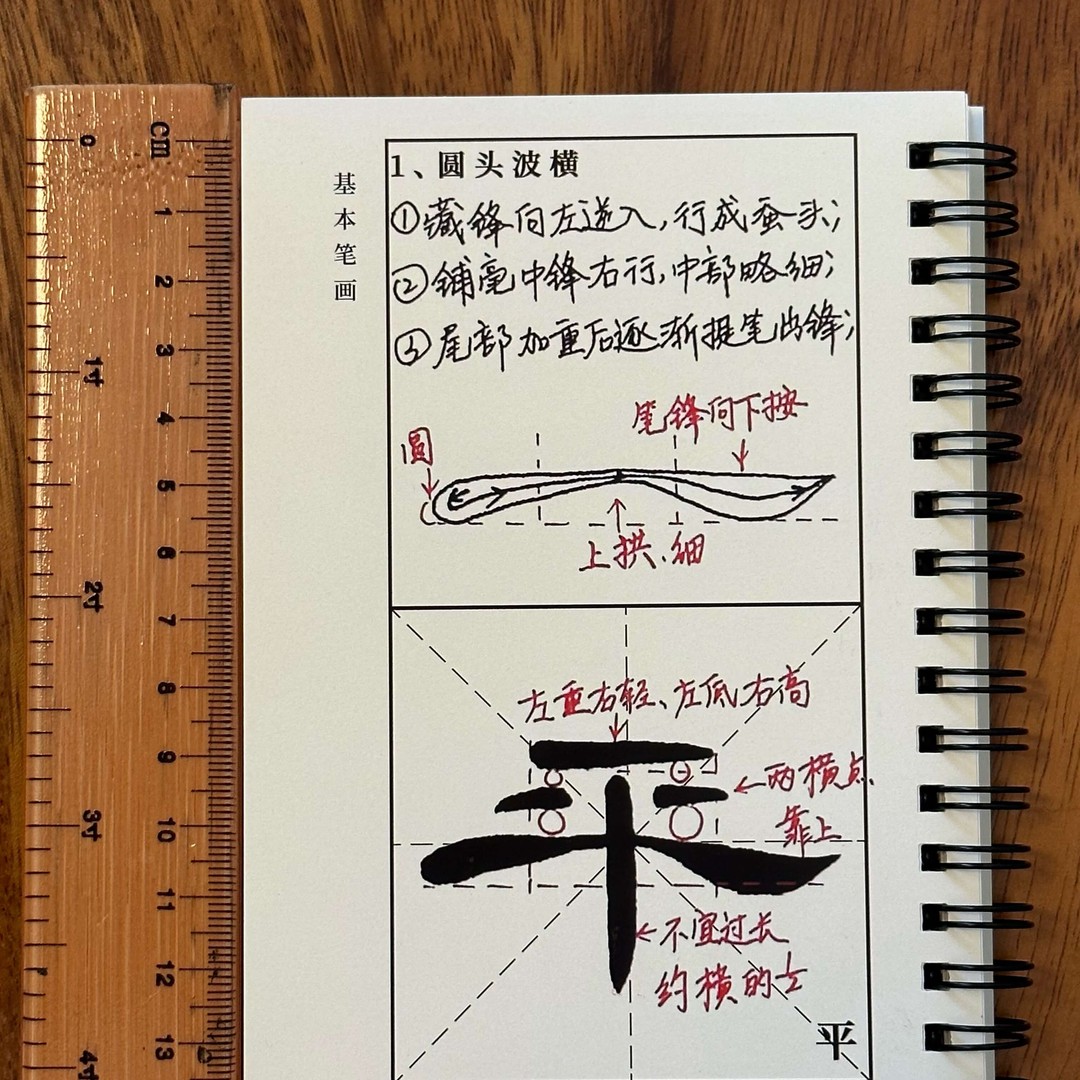 cm
0
1
2
3
4
5
6
7
8
9
10
11
12
13
1寸
2寸
3寸
4寸
基本笔画
1、圆头波横
①藏锋向左逆入,行成蚕头;
②铺毫中锋右行,中部略细;
③尾部加重后逐渐提笔出锋;
笔锋向下按
圆
上拱、细
左重右轻、左低右高
平
两横点
靠上
不宜过长
约横的½
平